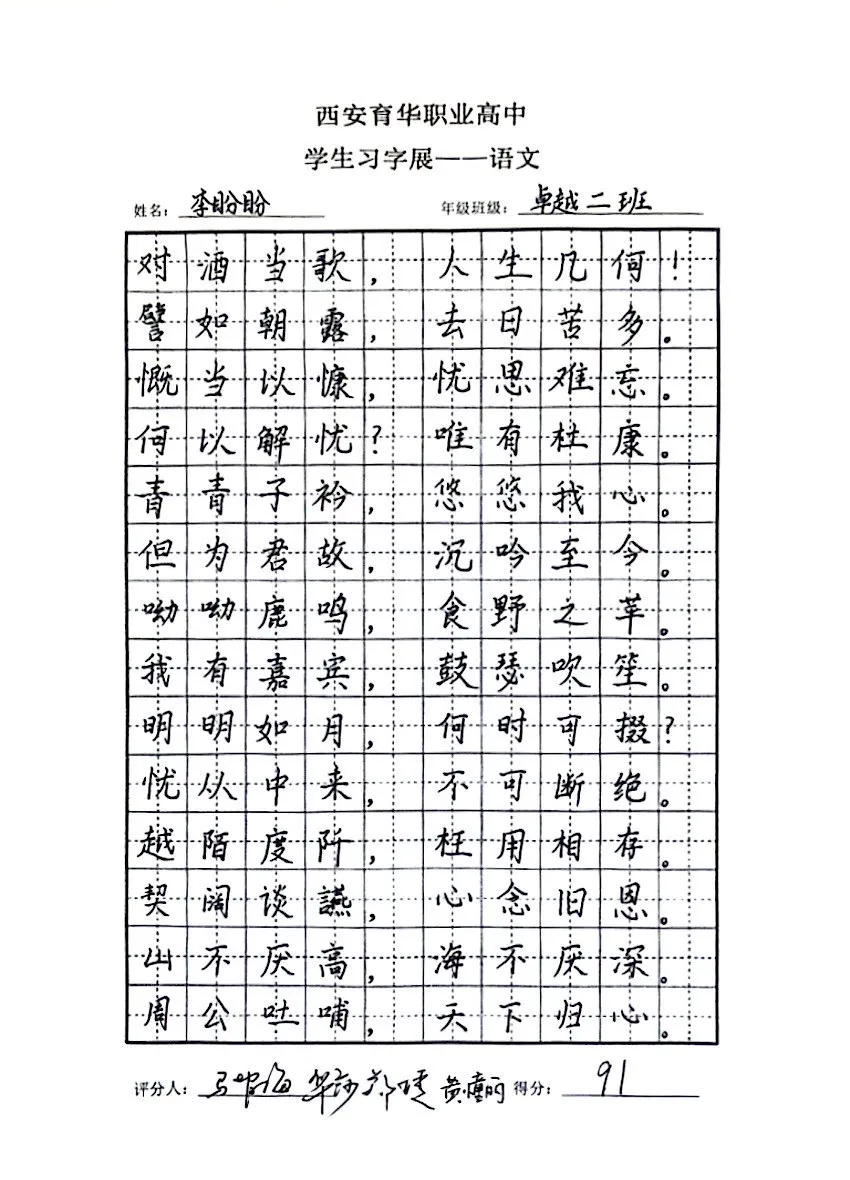 西安育华职业高中
学生习字展——语文
姓名: 李盼盼 年级班级: 卓越二班
对酒当歌,人生几何!
譬如朝露,去日苦多。
慨当以慷,忧思难忘。
何以解忧?唯有杜康。
青青子衿,悠悠我心。
但为君故,沉吟至今。
呦呦鹿鸣,食野之苹。
我有嘉宾,鼓瑟吹笙。
明明如月,何时可掇?
忧从中来,不可断绝。
越陌度阡,枉用相存。
契阔谈讌,心念旧恩。
山不厌高,海不厌深。
周公吐哺,天下归心。
评分人: 黄瞳丽 得分: 91